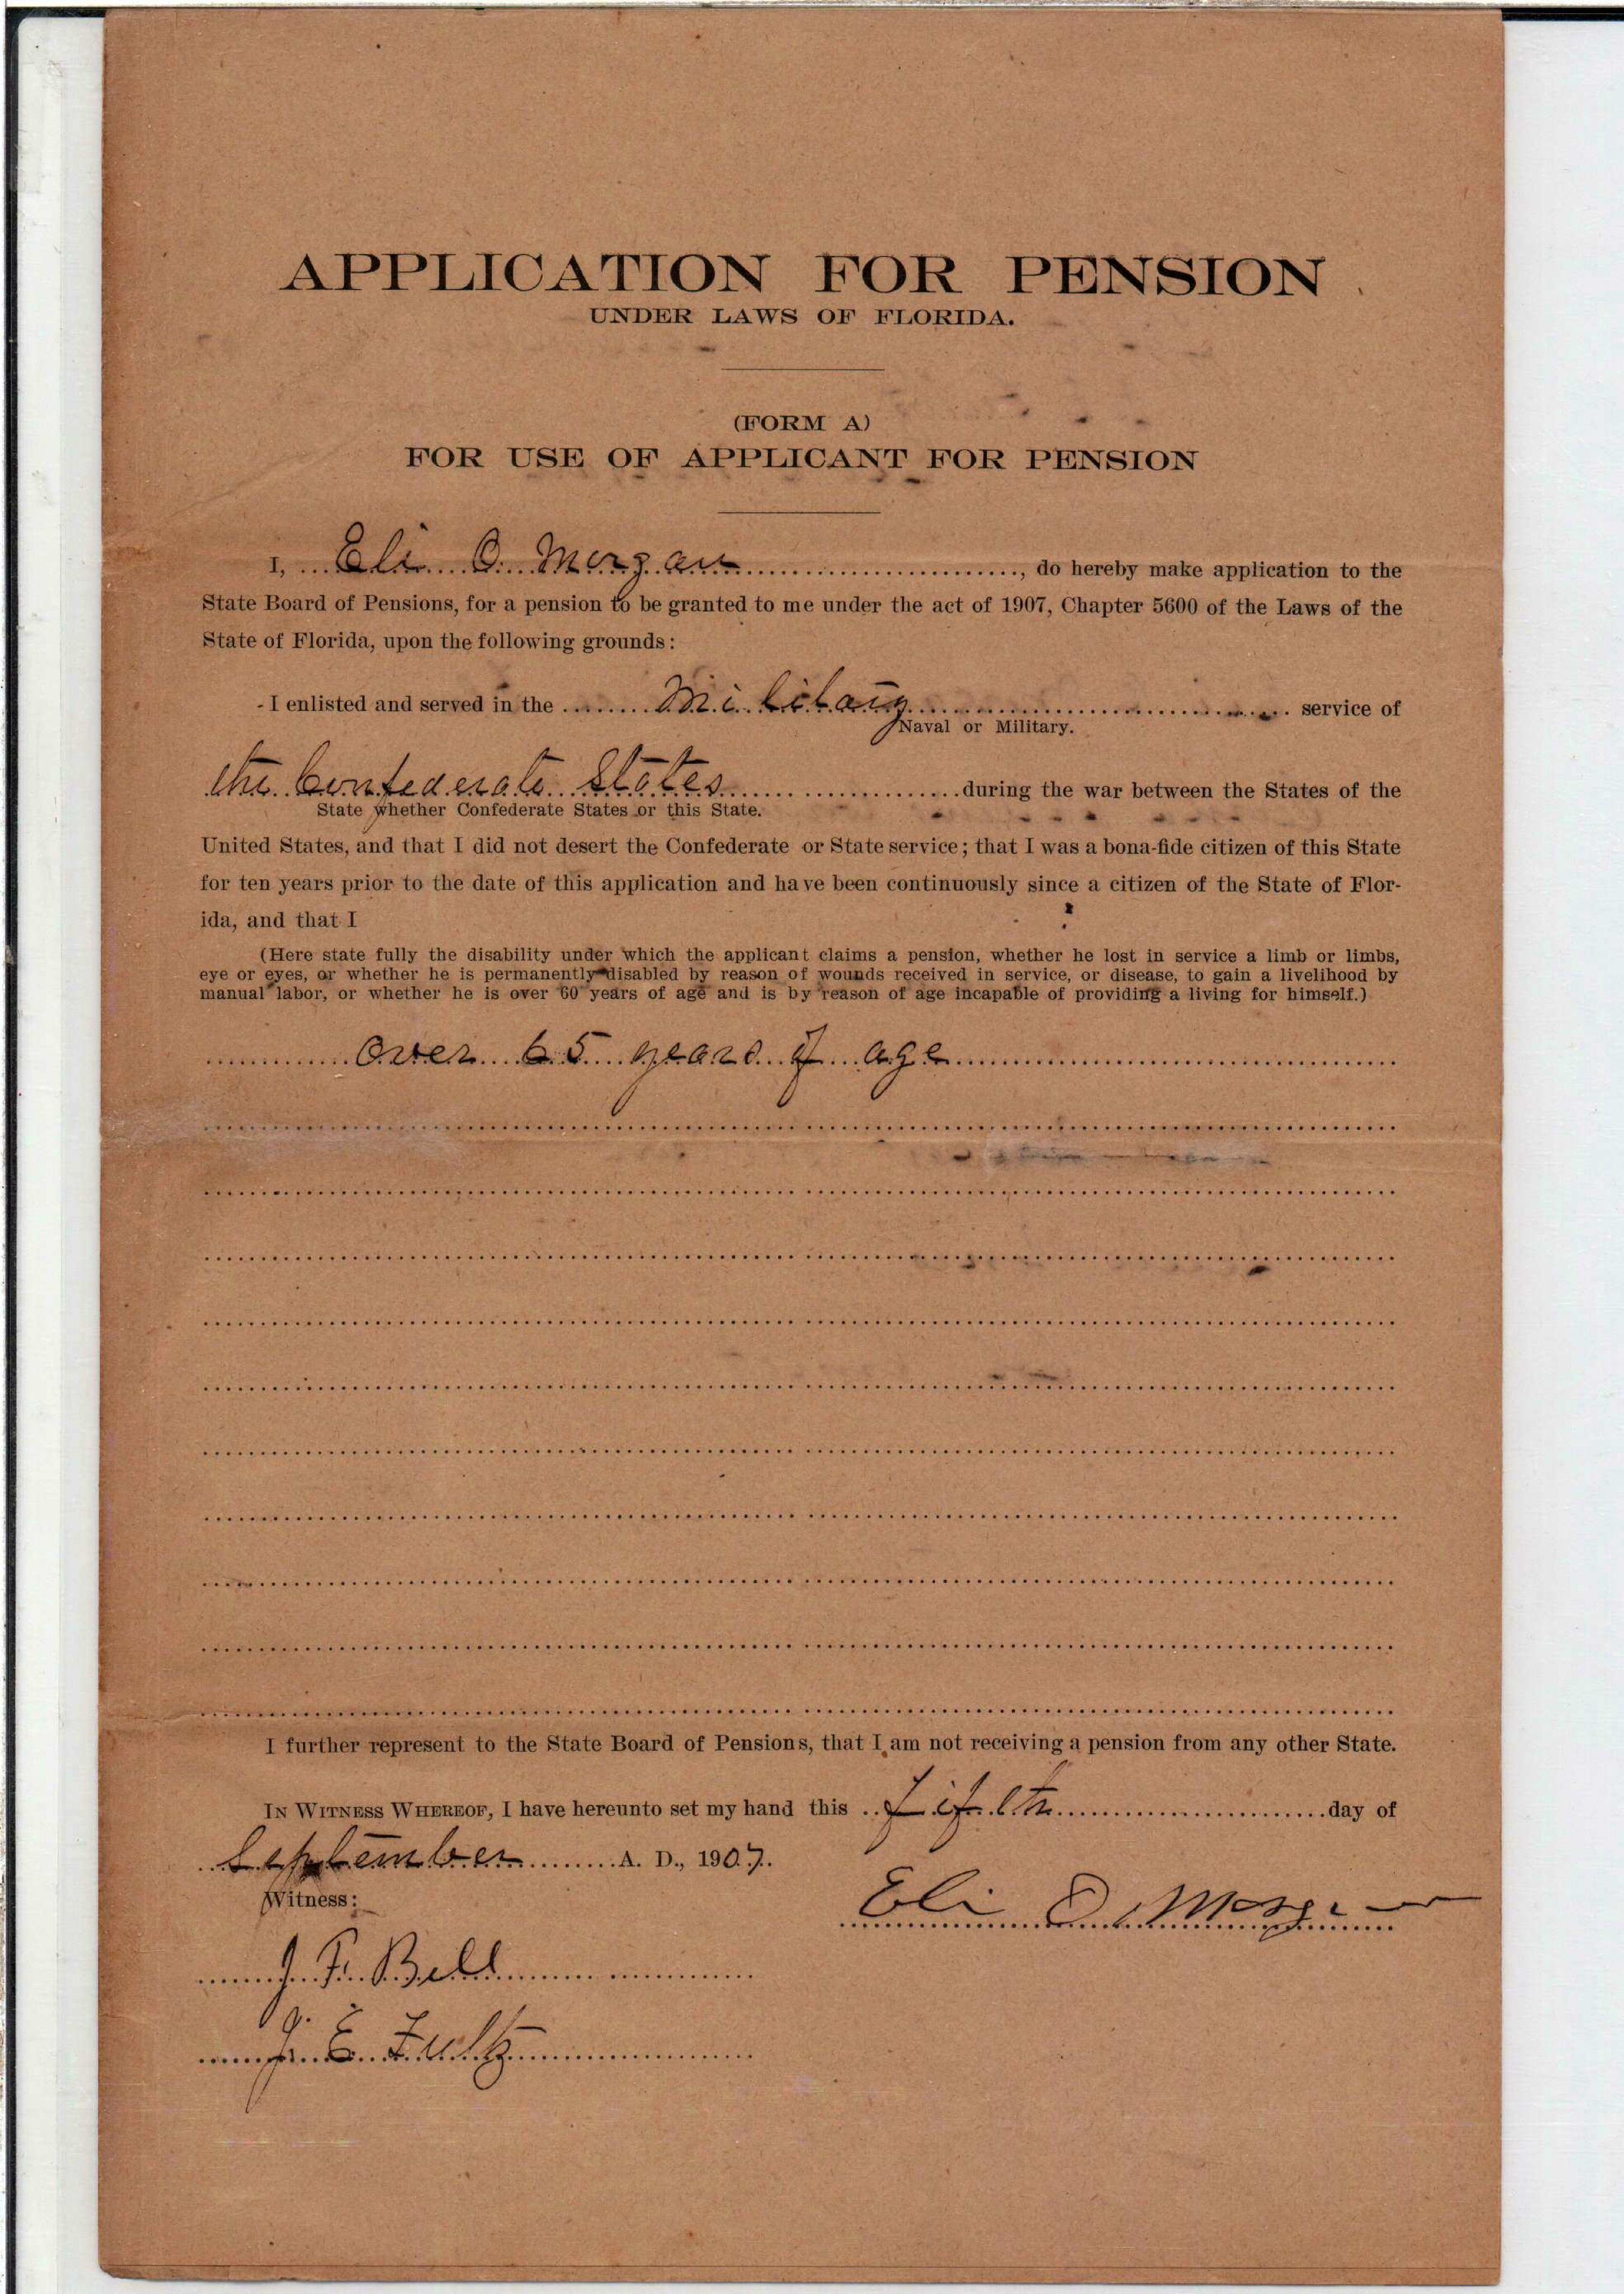 APPLICATION FOR PENSION
UNDER LAWS OF FLORIDA.
(FORM A)
FOR USE OF APPLICANT FOR PENSION
I, Eli O. Morgan, do hereby make application to the
State Board of Pensions, for a pension to be granted to me under the act of 1907, Chapter 5600 of the Laws of the
State of Florida, upon the following grounds:
I enlisted and served in the Military service of
Naval or Military.
the Confederate States during the war between the States of the
State whether Confederate States or this State.
United States, and that I did not desert the Confederate or State service; that I was a bona-fide citizen of this State
for ten years prior to the date of this application and have been continuously since a citizen of the State of Flor-
ida, and that I
(Here state fully the disability under which the applicant claims a pension, whether he lost in service a limb or limbs,
eye or eyes, or whether he is permanently disabled by reason of wounds received in service, or disease, to gain a livelihood by
manual labor, or whether he is over 60 years of age and is by reason of age incapable of providing a living for himself.)
Over 65 years of age
I further represent to the State Board of Pensions, that I am not receiving a pension from any other State.
IN WITNESS WHEREOF, I have hereunto set my hand this Fifth day of
September A. D., 1907.
Witness:
Eli O Morgan
J. F. Bell
J. E. Fultz